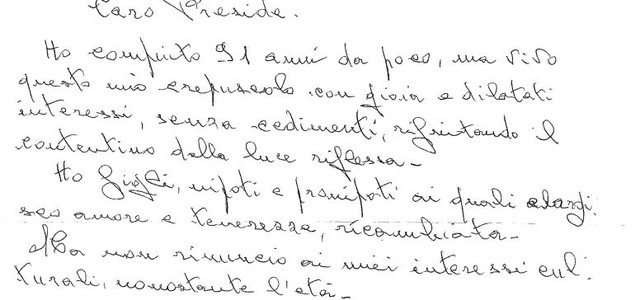 Caro Preside.
Ho compiuto 91 anni da poco, ma vivo
questo mio crepuscolo con gioia e dilatati
interessi, senza cedimenti, rifiutando il
contentino della luce riflessa.
Ho figli, nipoti e pronipoti ai quali elargi:
sco amore e tenerezza, ricambiata.
Ma non rinuncio ai miei interessi cul:
turali, nonostante l'età.